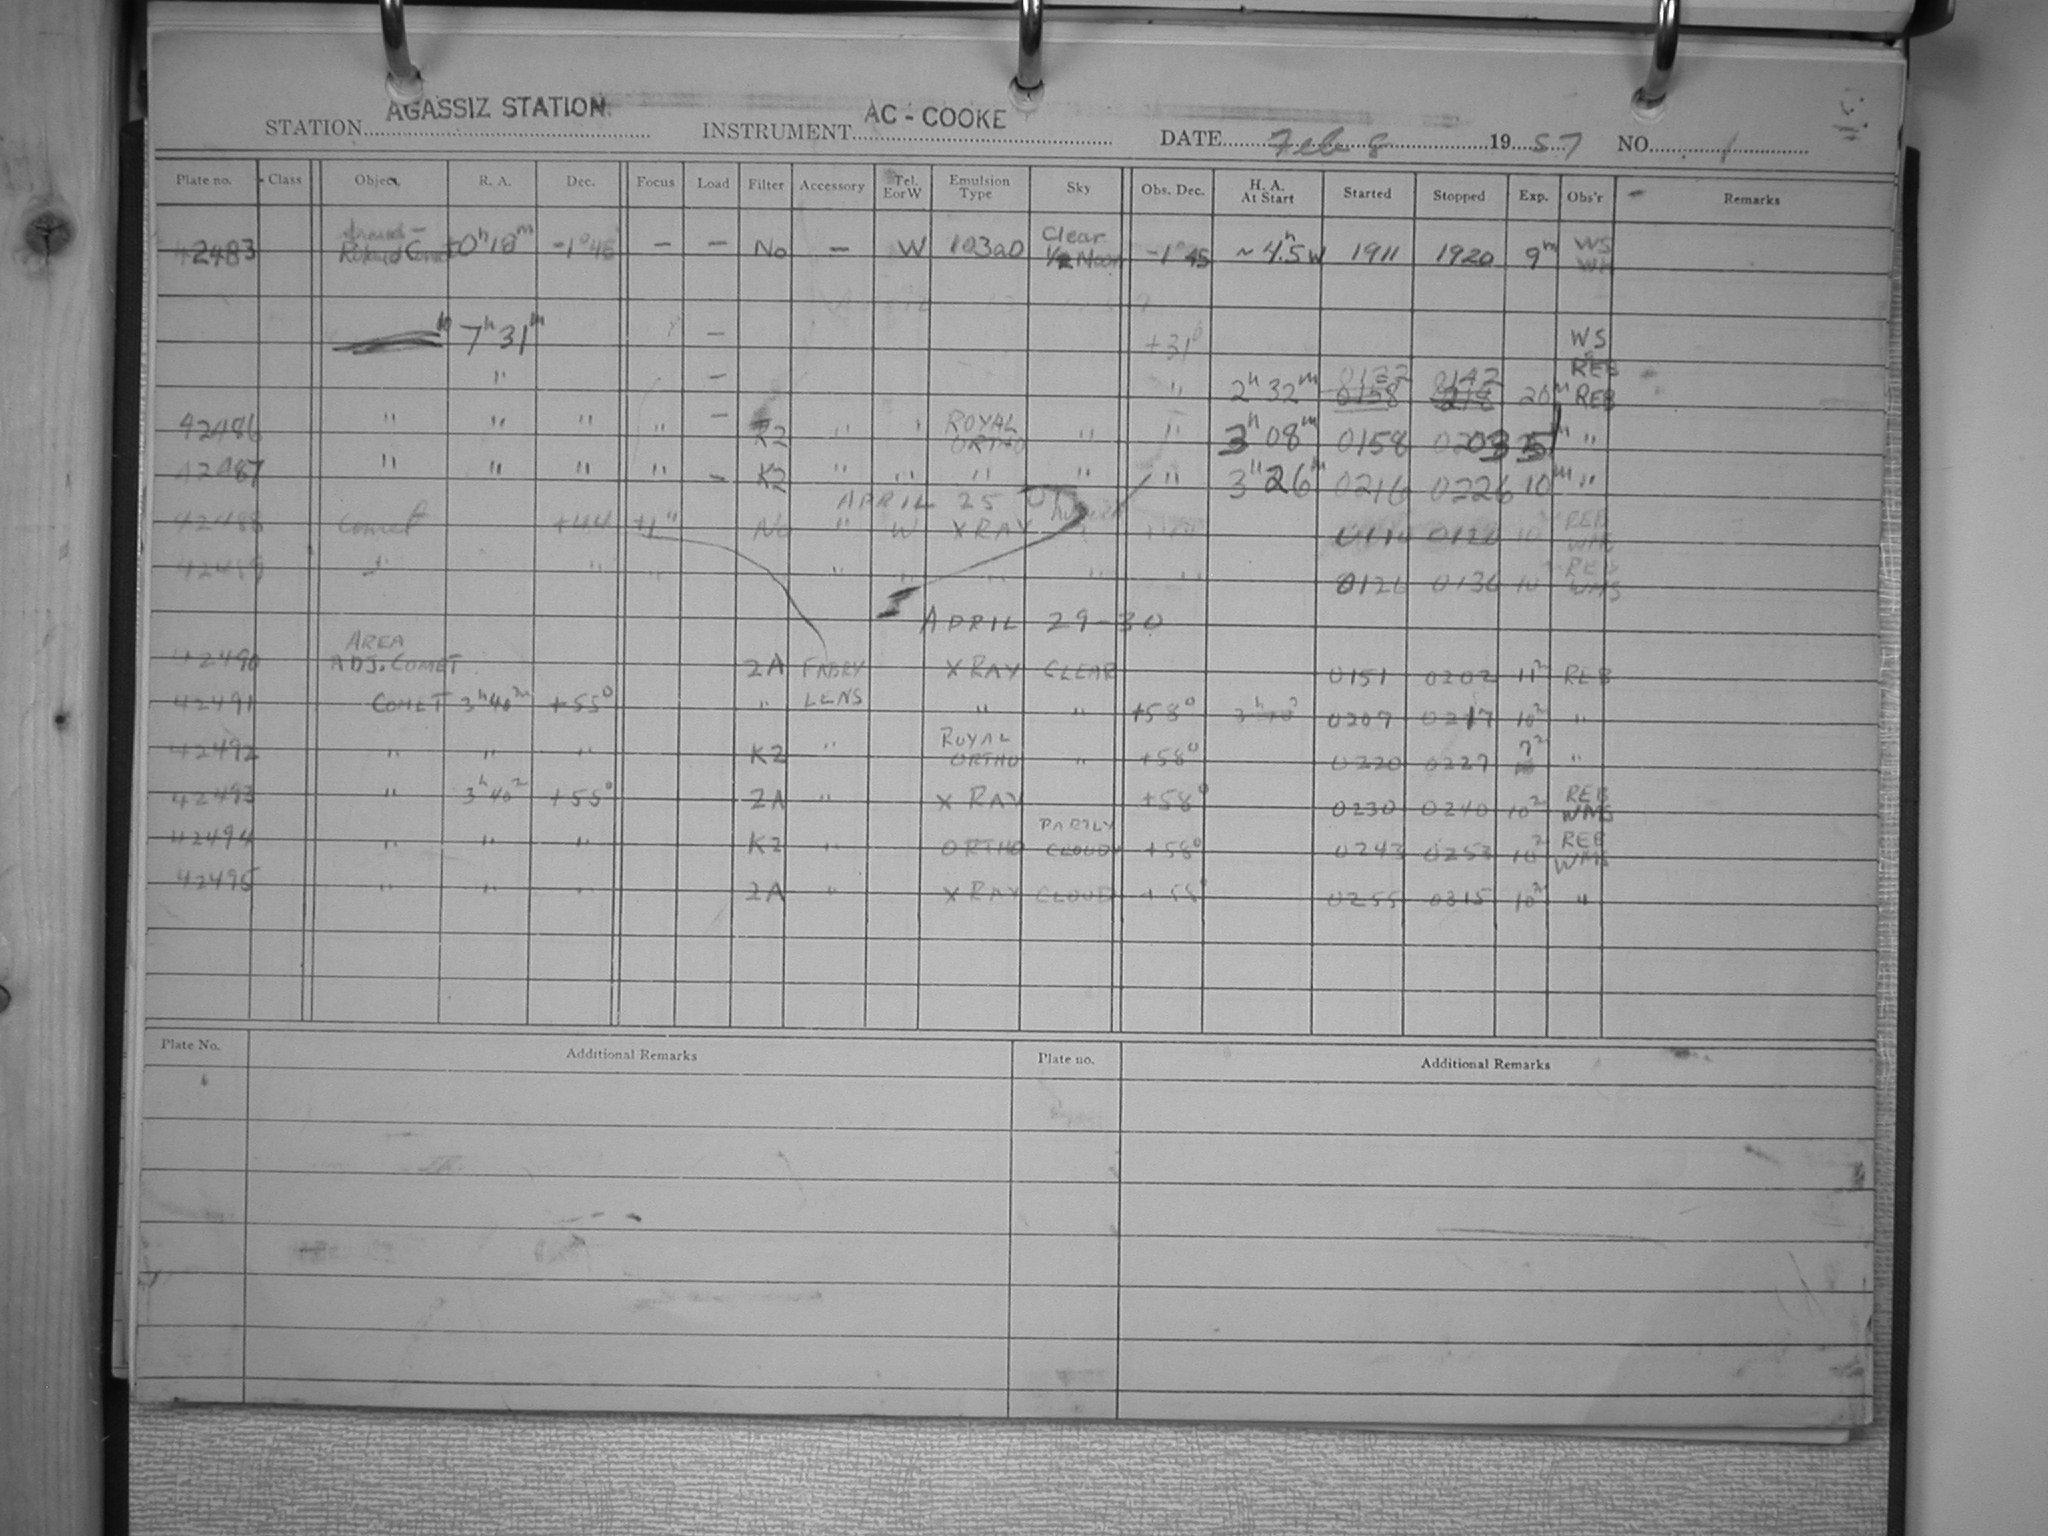 STATION AGASSIZ STATION INSTRUMENT AC - COOKE DATE Feb 8 1957 NO. 1
Plate no. Class Object R. A. Dec. Focus Load Filter Accessory Tel. E or W Emulsion Type Sky Obs. Dec. H. A. At Start Started Stopped Exp. Obs'r Remarks
42483 0h 18m - - No - W 103aO Clear -1° 45 ~4.5h W 1911 1920 9m WS
7h 31m - +31° WS
REB
" - " 2h 32m 0122 0142 20m REB
42486 " " " " - K2 " " ROYAL ORTHO " " 3h 08m 0158 0203 5m "
42487 " " " " - K2 " " " " " 3h 26m 0216 0226 10m "
APRIL 25
42488 Comet +44 No " W XRAY 0120 REB
42489 " " " " " " " " 0126 0136 10 REB WMS
APRIL 29-30
42490 AREA ADJ. COMET 2A FABRY XRAY CLEAR 0151 0202 11m REB
42491 COMET 3h 40m +55° " LENS " " +58° 0207 0217 10m "
42492 " " " K2 " ROYAL ORTHO " +58° 0220 0227 7m "
42493 " 3h 40m +55° 2A " XRAY +58° 0230 0240 10m REB WMS
42494 " " " K2 " ORTHO PARTLY CLOUDY +58° 0243 0253 10m REB WMS
42495 " " " 2A " XRAY CLOUD +58° 0255 0315 10m "
Plate No. Additional Remarks Plate no. Additional Remarks